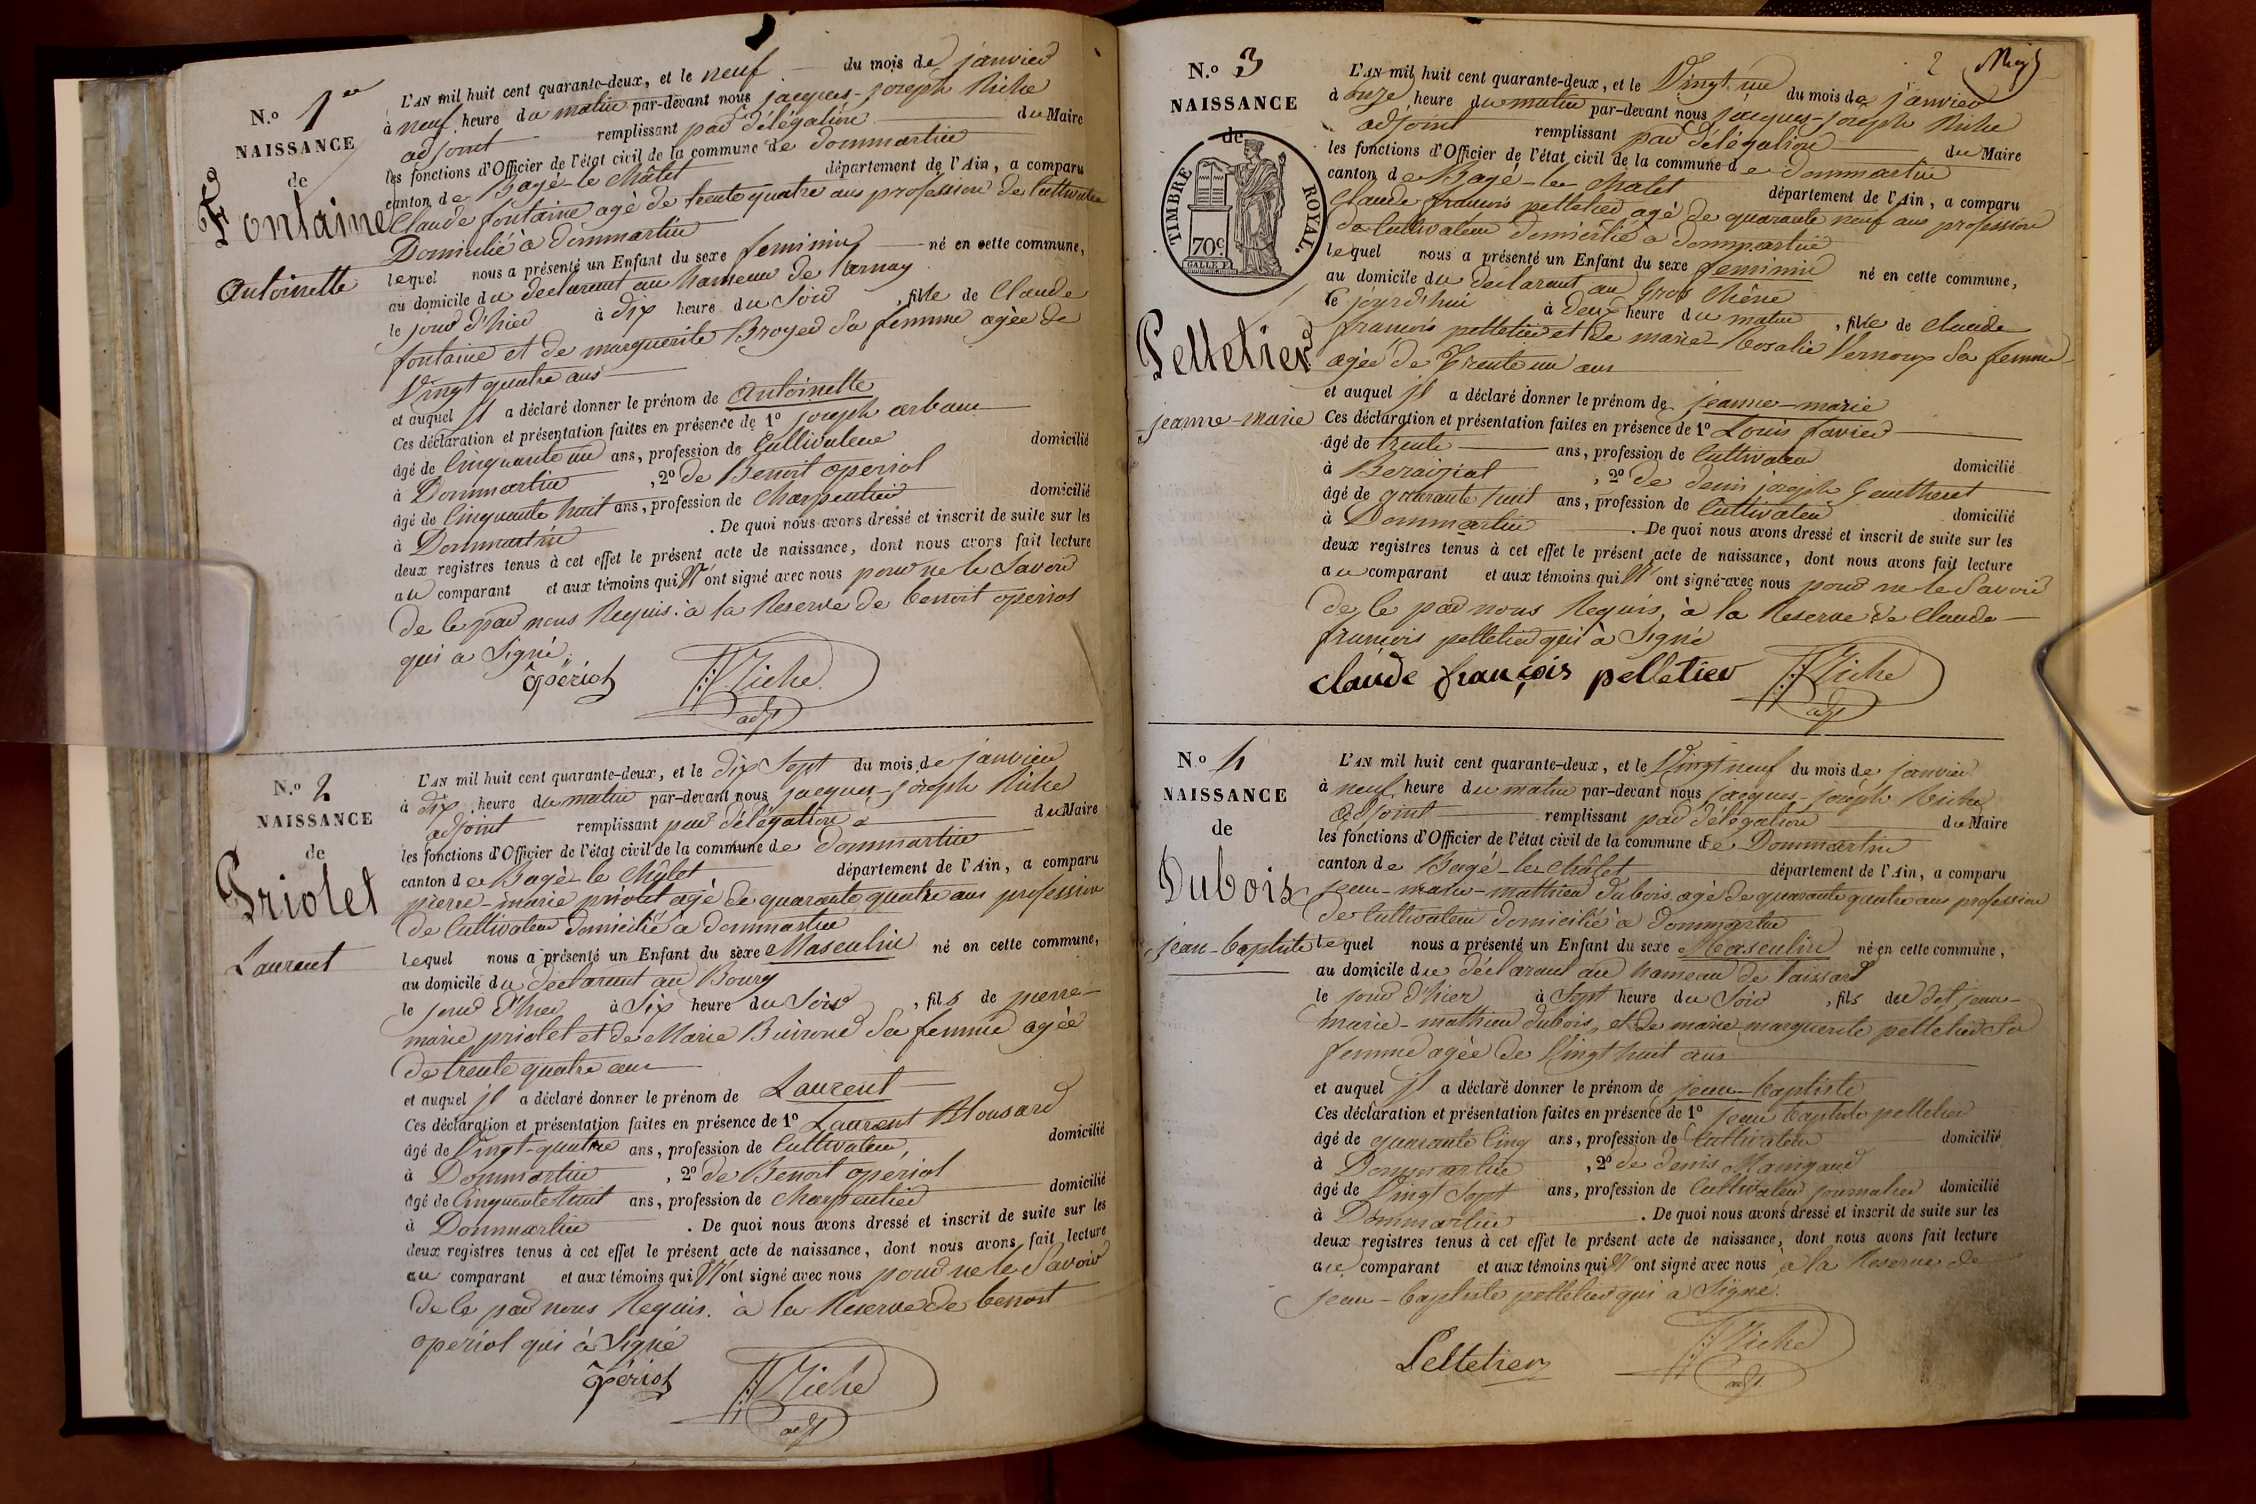 N.º 1er
NAISSANCE
de
Fontaine
Antoinette
L'AN mil huit cent quarante-deux, et le neuf du mois de janvier
à neuf heure du matin par-devant nous jacques-joseph Riche
adjoint remplissant par délégation du Maire
les fonctions d'Officier de l'état civil de la commune de dommartin
canton de Bagé-le châtel département de l'Ain, a comparu
Claude fontaine agé de trente quatre ans profession de Cultivateur
Domicilié à dommartin
lequel nous a présenté un Enfant du sexe feminin né en cette commune,
au domicile du declarant au hameau de
le jour d'hier à dix heure du Soir, fille de Claude
fontaine et de marguerite Broyer Sa femme agée de
Vingt quatre ans
et auquel il a déclaré donner le prénom de Antoinette
Ces déclaration et présentation faites en présence de 1º joseph
âgé de Cinquante un ans, profession de Cultivateur domicilié
à Dommartin, 2º de Benoit operiol
âgé de Cinquante huit ans, profession de Charpentier domicilié
à Dommartin. De quoi nous avons dressé et inscrit de suite sur les
deux registres tenus à cet effet le présent acte de naissance, dont nous avons fait lecture
au comparant et aux témoins qui N'ont signé avec nous pour ne le Savoir
de le par nous Requis. à la Reserve de benoit operiol
qui a Signé.
Opériol Riche
adjt
N.º 2
NAISSANCE
de
Priolet
Laurent
L'AN mil huit cent quarante-deux, et le dix Sept du mois de janvier
à dix heure du matin par-devant nous jacques-joseph Riche
adjoint remplissant par délégation du Maire
les fonctions d'Officier de l'état civil de la commune de dommartin
canton de Bagé-le châtel département de l'Ain, a comparu
pierre-marie priolet agé de quarante quatre ans profession
de Cultivateur domicilié à dommartin
lequel nous a présenté un Enfant du sexe Masculin né en cette commune,
au domicile du declarant au Bourg
le jour d'hier à Six heure du Soir, fils de pierre-
marie priolet et de Marie Buiron Sa femme agée
de trente quatre ans
et auquel il a déclaré donner le prénom de Laurent
Ces déclaration et présentation faites en présence de 1º Laurent Blousard
âgé de Vingt-quatre ans, profession de Cultivateur, domicilié
à Dommartin, 2º de Benoit operiol
âgé de Cinquante huit ans, profession de Charpentier domicilié
à Dommartin. De quoi nous avons dressé et inscrit de suite sur les
deux registres tenus à cet effet le présent acte de naissance, dont nous avons fait lecture
au comparant et aux témoins qui N'ont signé avec nous pour ne le Savoir
de le par nous Requis. à la Reserve de benoit
operiol qui à Signé
Opériol Riche
adjt
2
N.º 3
NAISSANCE
de
TIMBRE ROYAL.
70c
GALLE F.
Pelletier
jeanne-marie
L'AN mil huit cent quarante-deux, et le Vingt-un du mois de janvier
à onze heure du matin par-devant nous jacques-joseph Riche
adjoint remplissant par délégation du Maire
les fonctions d'Officier de l'état civil de la commune de dommartin
canton de Bagé-le chatel département de l'Ain, a comparu
Claude françois pelletier agé de quarante neuf ans profession
de Cultivateur domicilié à dommartin
lequel nous a présenté un Enfant du sexe feminin né en cette commune,
au domicile du declarant au Gros Chêne
le jourd'hui à Deux heure du matin, fille de Claude
françois pelletier et de marie-Rosalie Vernoux Sa femme
agée de Trente un ans
et auquel il a déclaré donner le prénom de jeanne-marie
Ces déclaration et présentation faites en présence de 1º Louis favier
âgé de trente ans, profession de Cultivateur domicilié
à Bereizial, 2º de denis joseph Gautheret
âgé de quarante huit ans, profession de Cultivateur domicilié
à Dommartin. De quoi nous avons dressé et inscrit de suite sur les
deux registres tenus à cet effet le présent acte de naissance, dont nous avons fait lecture
au comparant et aux témoins qui N'ont signé avec nous pour ne le Savoir
de le par nous Requis, à la Reserve de Claude
françois pelletier qui à Signé
claude françois pelletier Riche
adjt
N.º 4
NAISSANCE
de
Dubois
jean-baptiste
L'AN mil huit cent quarante-deux, et le Vingt neuf du mois de janvier
à neuf heure du matin par-devant nous jacques-joseph Riche
adjoint remplissant par délégation du Maire
les fonctions d'Officier de l'état civil de la commune de Dommartin
canton de Bagé-le châtel département de l'Ain, a comparu
jean-marie-mathieu dubois agé de quarante quatre ans profession
de Cultivateur domicilié à dommartin
lequel nous a présenté un Enfant du sexe Masculin né en cette commune,
au domicile du déclarant au hameau de
le jour d'hier à Sept heure du Soir, fils du dit jean-
marie-mathieu dubois, et de marie marguerite pelletier Sa
femme agée de Vingt huit ans
et auquel il a déclaré donner le prénom de jean-baptiste
Ces déclaration et présentation faites en présence de 1º jean baptiste pelletier
âgé de quarante Cinq ans, profession de Cultivateur domicilié
à Dommartin, 2º de denis Maingaud
âgé de Vingt Sept ans, profession de Cultivateur journalier domicilié
à Dommartin. De quoi nous avons dressé et inscrit de suite sur les
deux registres tenus à cet effet le présent acte de naissance, dont nous avons fait lecture
au comparant et aux témoins qui N'ont signé avec nous à la Reserve de
jean-baptiste pelletier qui à Signé.
Pelletier Riche
adjt